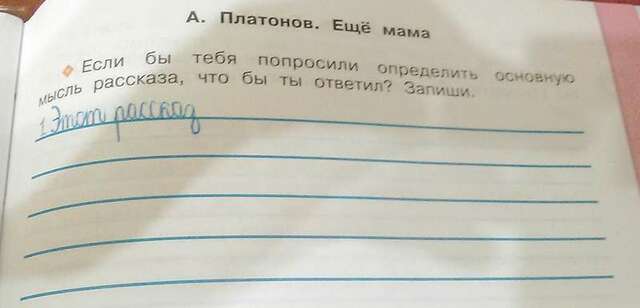 А. Платонов. Ещё мама
Если бы тебя попросили определить основную
мысль рассказа, что бы ты ответил? Запиши.
1. Этот рассказ